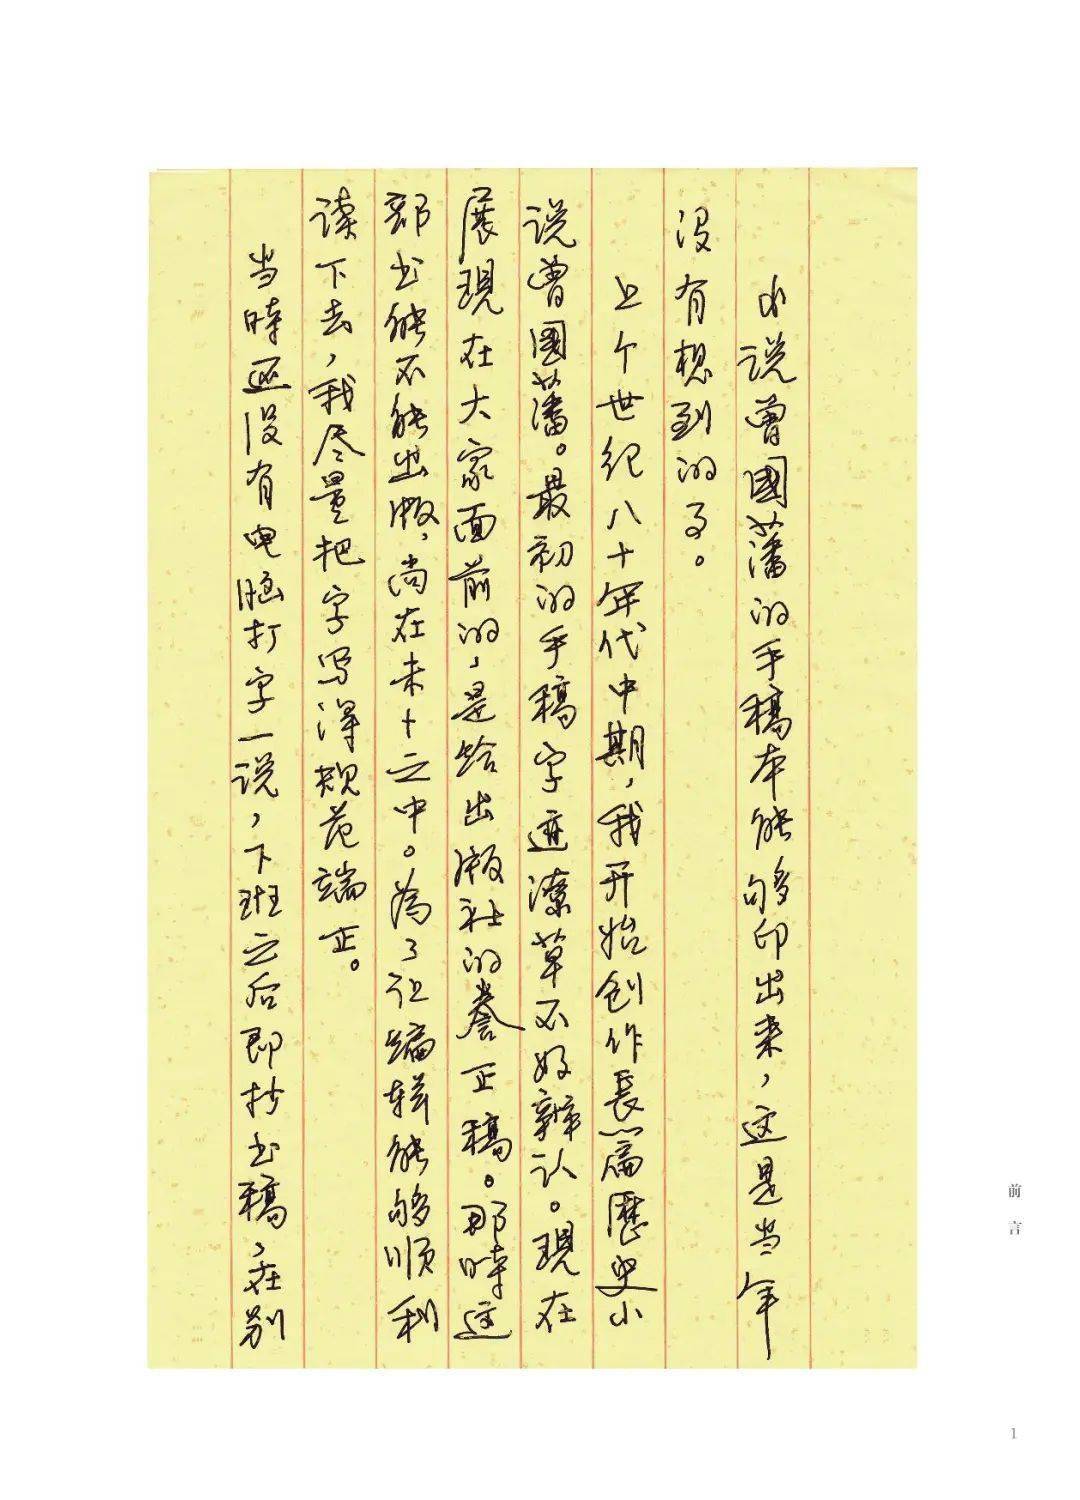 小说曾國藩的手稿本能够印出来，这是当年
没有想到的事。
上个世纪八十年代中期，我开始创作長篇歷史小
说曾國藩。最初的手稿字迹潦草不好辨认。現在
展現在大家面前的，是给出版社的誊正稿。那時这
部书能不能出版，尚在未卜之中。為了让编辑能够顺利
读下去，我尽量把字写得规范端正。
当時还没有电脑打字一说，下班之后即抄书稿，在别
前言
1